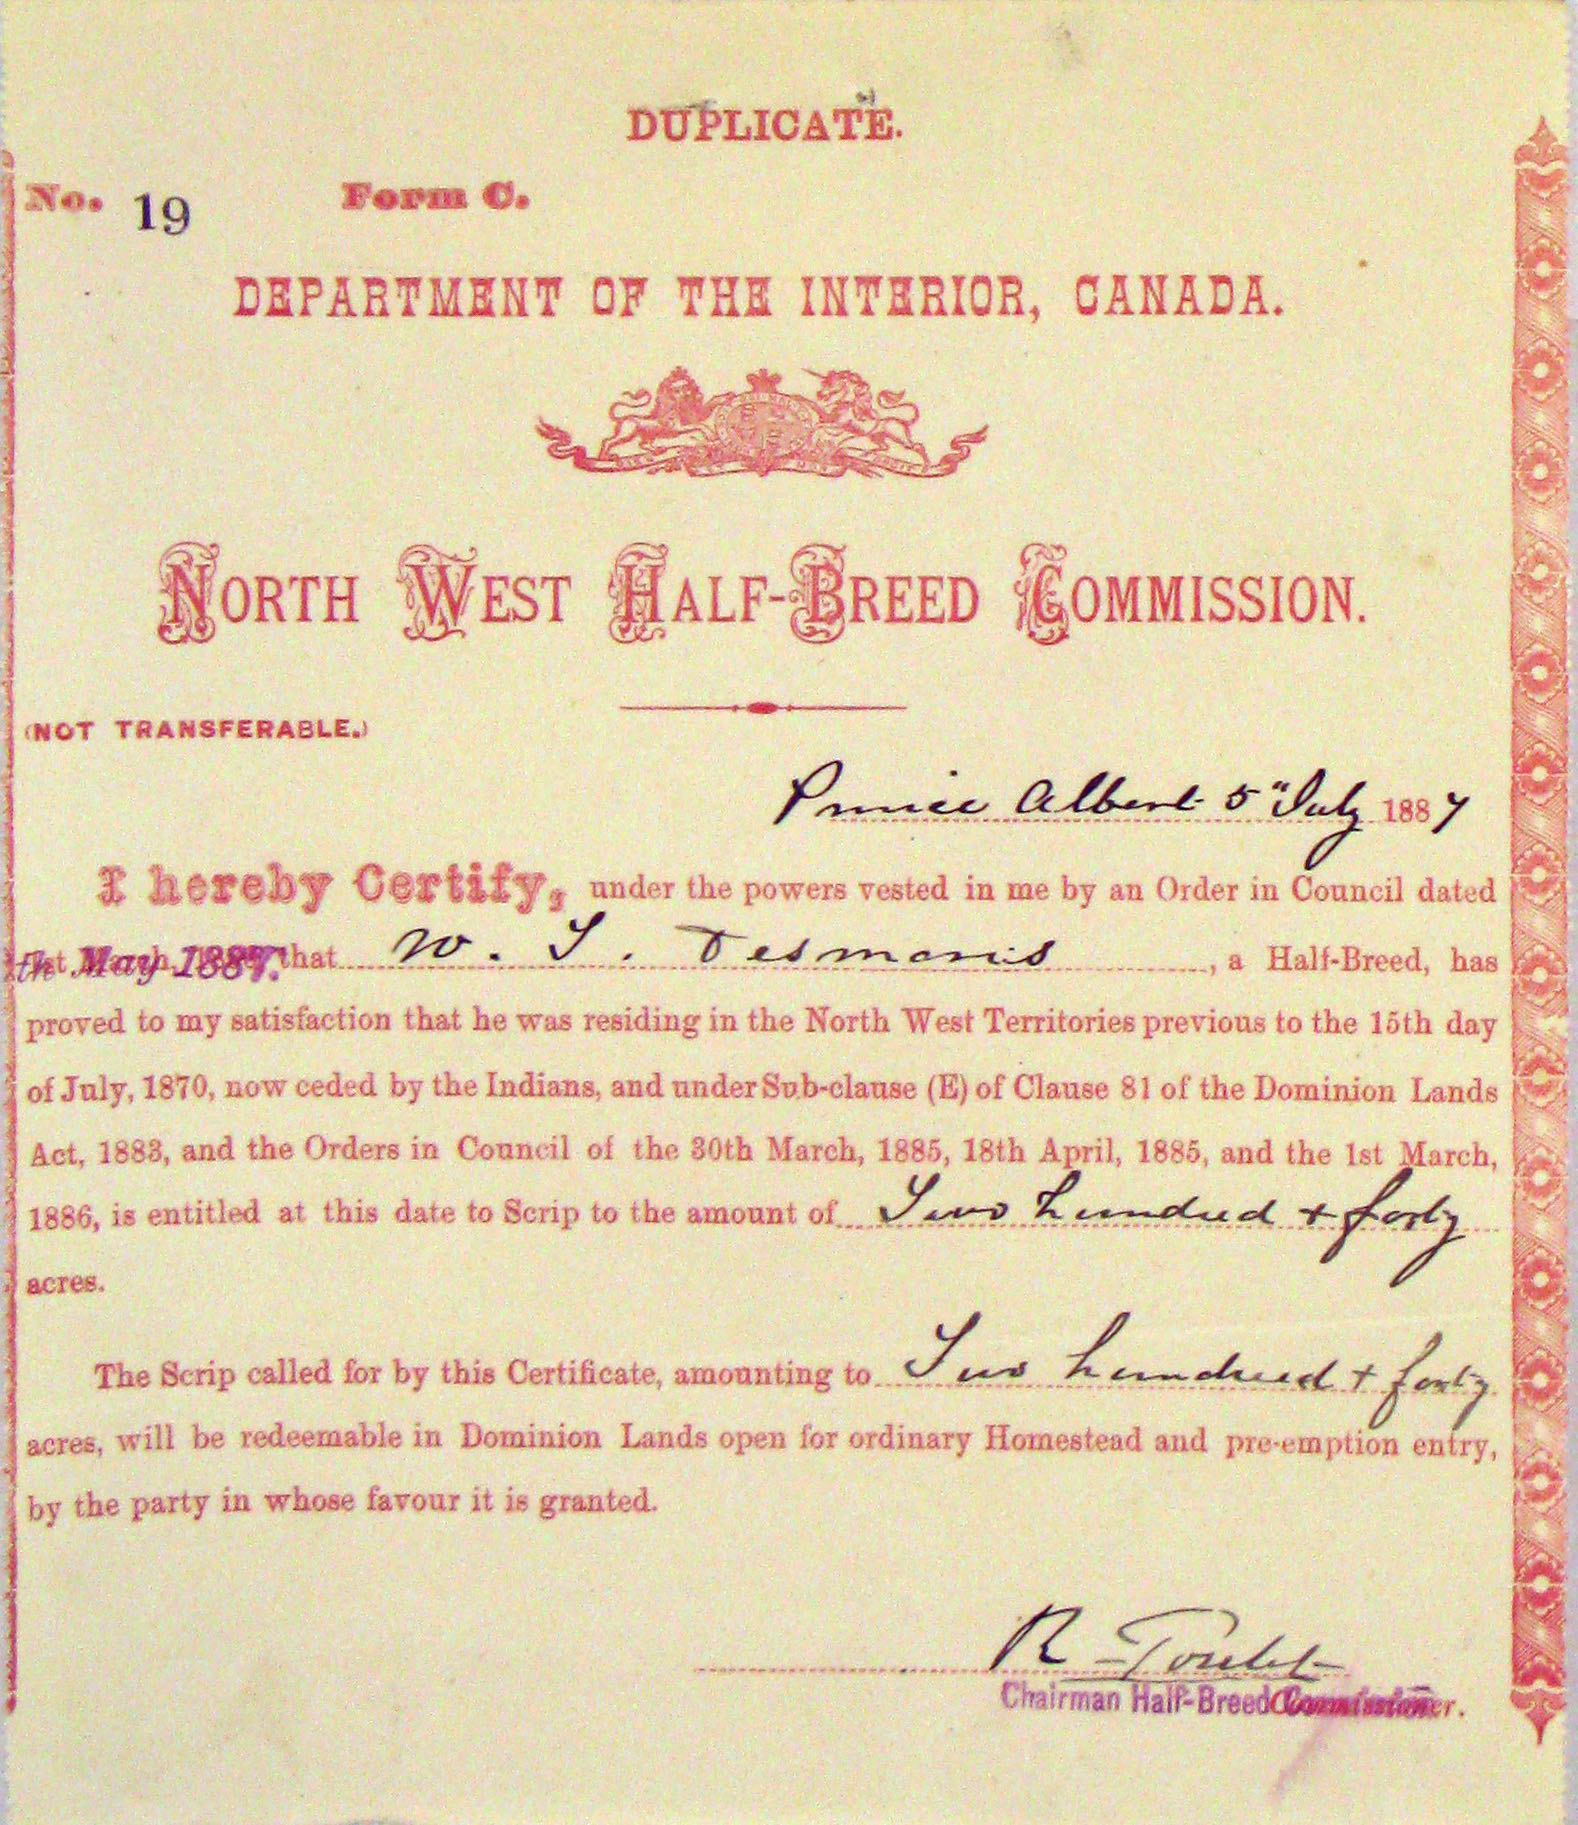 DUPLICATE.
No. 19 Form C.
DEPARTMENT OF THE INTERIOR, CANADA.
NORTH WEST HALF-BREED COMMISSION.
(NOT TRANSFERABLE.)
Prince Albert 5" July 1887
I hereby Certify, under the powers vested in me by an Order in Council dated
th May 1887. that W. T. Desmarais, a Half-Breed, has
proved to my satisfaction that he was residing in the North West Territories previous to the 15th day
of July, 1870, now ceded by the Indians, and under Sub-clause (E) of Clause 81 of the Dominion Lands
Act, 1883, and the Orders in Council of the 30th March, 1885, 18th April, 1885, and the 1st March,
1886, is entitled at this date to Scrip to the amount of Two hundred + forty
acres.
The Scrip called for by this Certificate, amounting to Two hundred + forty
acres, will be redeemable in Dominion Lands open for ordinary Homestead and pre-emption entry,
by the party in whose favour it is granted.
R
Chairman Half-Breed Commission